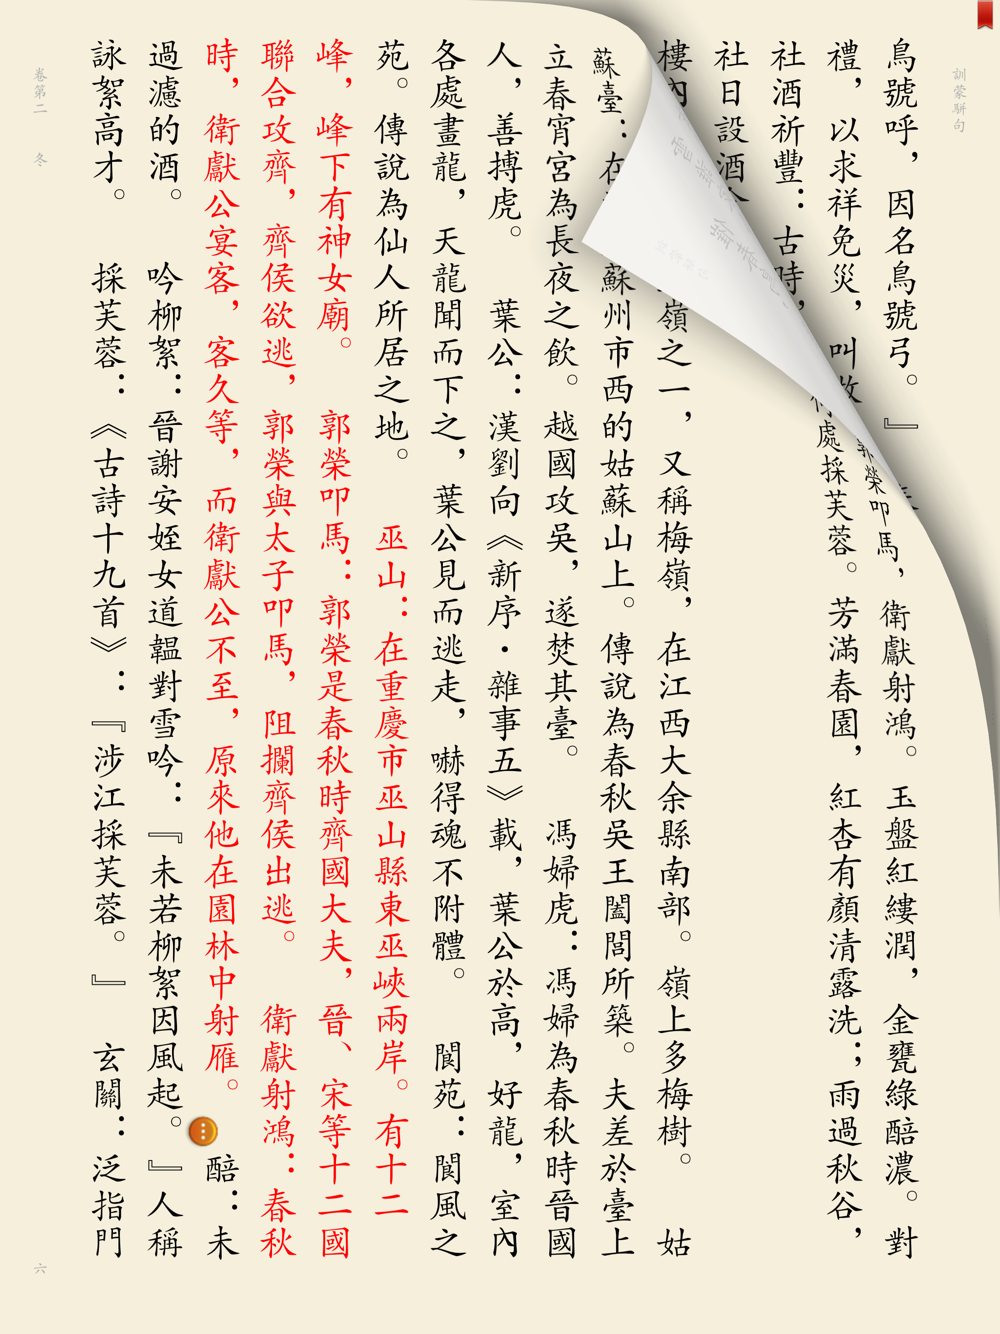 訓蒙駢句
鳥號呼，因名鳥號弓。』
郭榮叩馬，衛獻射鴻。玉盤紅縷潤，金甕綠醅濃。對
禮，以求祥免災，叫做
何處採芙蓉。芳滿春園，紅杏有顏清露洗；雨過秋谷，
社酒祈豐：古時，
社日設酒
樓內嶺之一，又稱梅嶺，在江西大余縣南部。嶺上多梅樹。　姑
蘇臺：在蘇州市西的姑蘇山上。傳說為春秋吳王闔閭所築。夫差於臺上
立春宵宮為長夜之飲。越國攻吳，遂焚其臺。　馮婦虎：馮婦為春秋時晉國
人，善搏虎。　葉公：漢劉向《新序·雜事五》載，葉公於高，好龍，室內
各處畫龍，天龍聞而下之，葉公見而逃走，嚇得魂不附體。　閬苑：閬風之
苑。傳說為仙人所居之地。　巫山：在重慶市巫山縣東巫峽兩岸。有十二
峰，峰下有神女廟。　郭榮叩馬：郭榮是春秋時齊國大夫，晉、宋等十二國
聯合攻齊，齊侯欲逃，郭榮與太子叩馬，阻攔齊侯出逃。　衛獻射鴻：春秋
時，衛獻公宴客，客久等，而衛獻公不至，原來他在園林中射雁。　醅：未
過濾的酒。　吟柳絮：晉謝安姪女道韞對雪吟：『未若柳絮因風起。』人稱
詠絮高才。　採芙蓉：《古詩十九首》：『涉江採芙蓉。』　玄關：泛指門
卷第二　冬
六